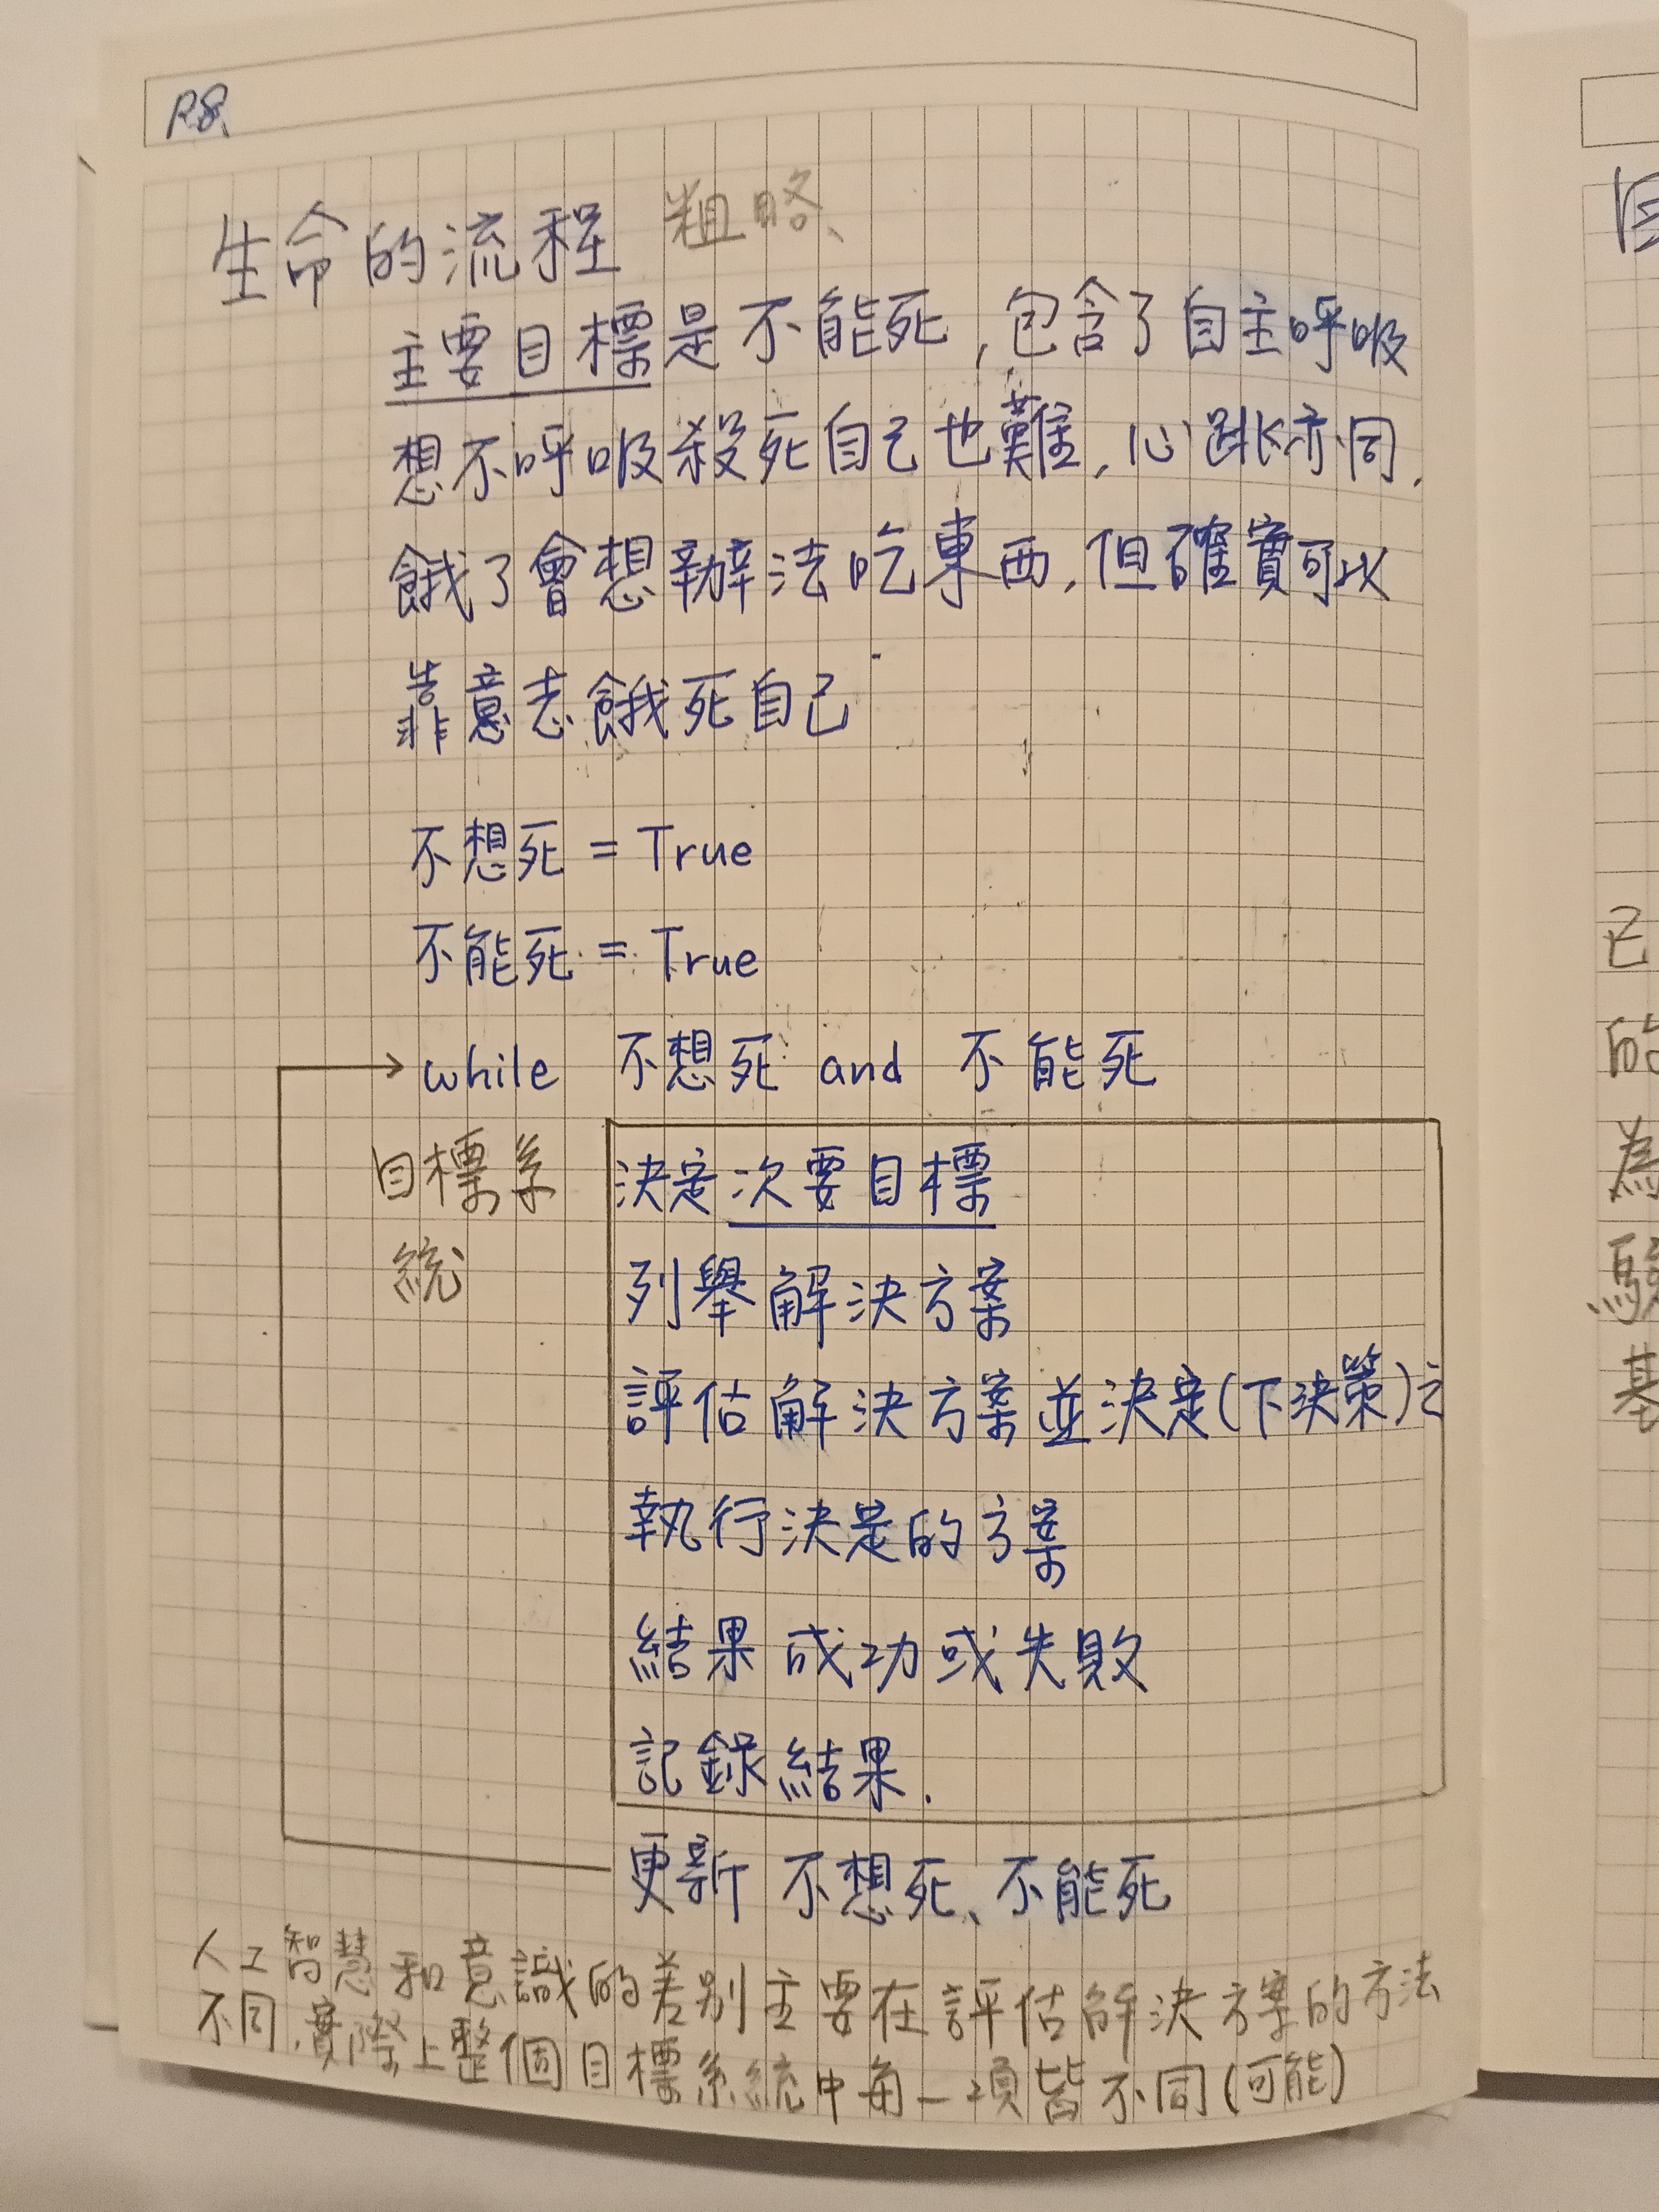 P.8.
生命的流程 粗略、
主要目標是不能死,包含了自主呼吸
想不呼吸殺死自己也難,心跳亦同,
餓了會想辦法吃東西,但確實可以
靠意志餓死自己
不想死 = True
不能死 = True
while 不想死 and 不能死
目標系
統
決定次要目標
列舉解決方案
評估解決方案並決定(下決策)之
執行決定的方案
結果 成功或失敗
記錄結果.
更新 不想死、不能死
人工智慧和意識的差別主要在評估解決方案的方法
不同,實際上整個目標系統中每一項皆不同(可能)
己
的
為
驗
基